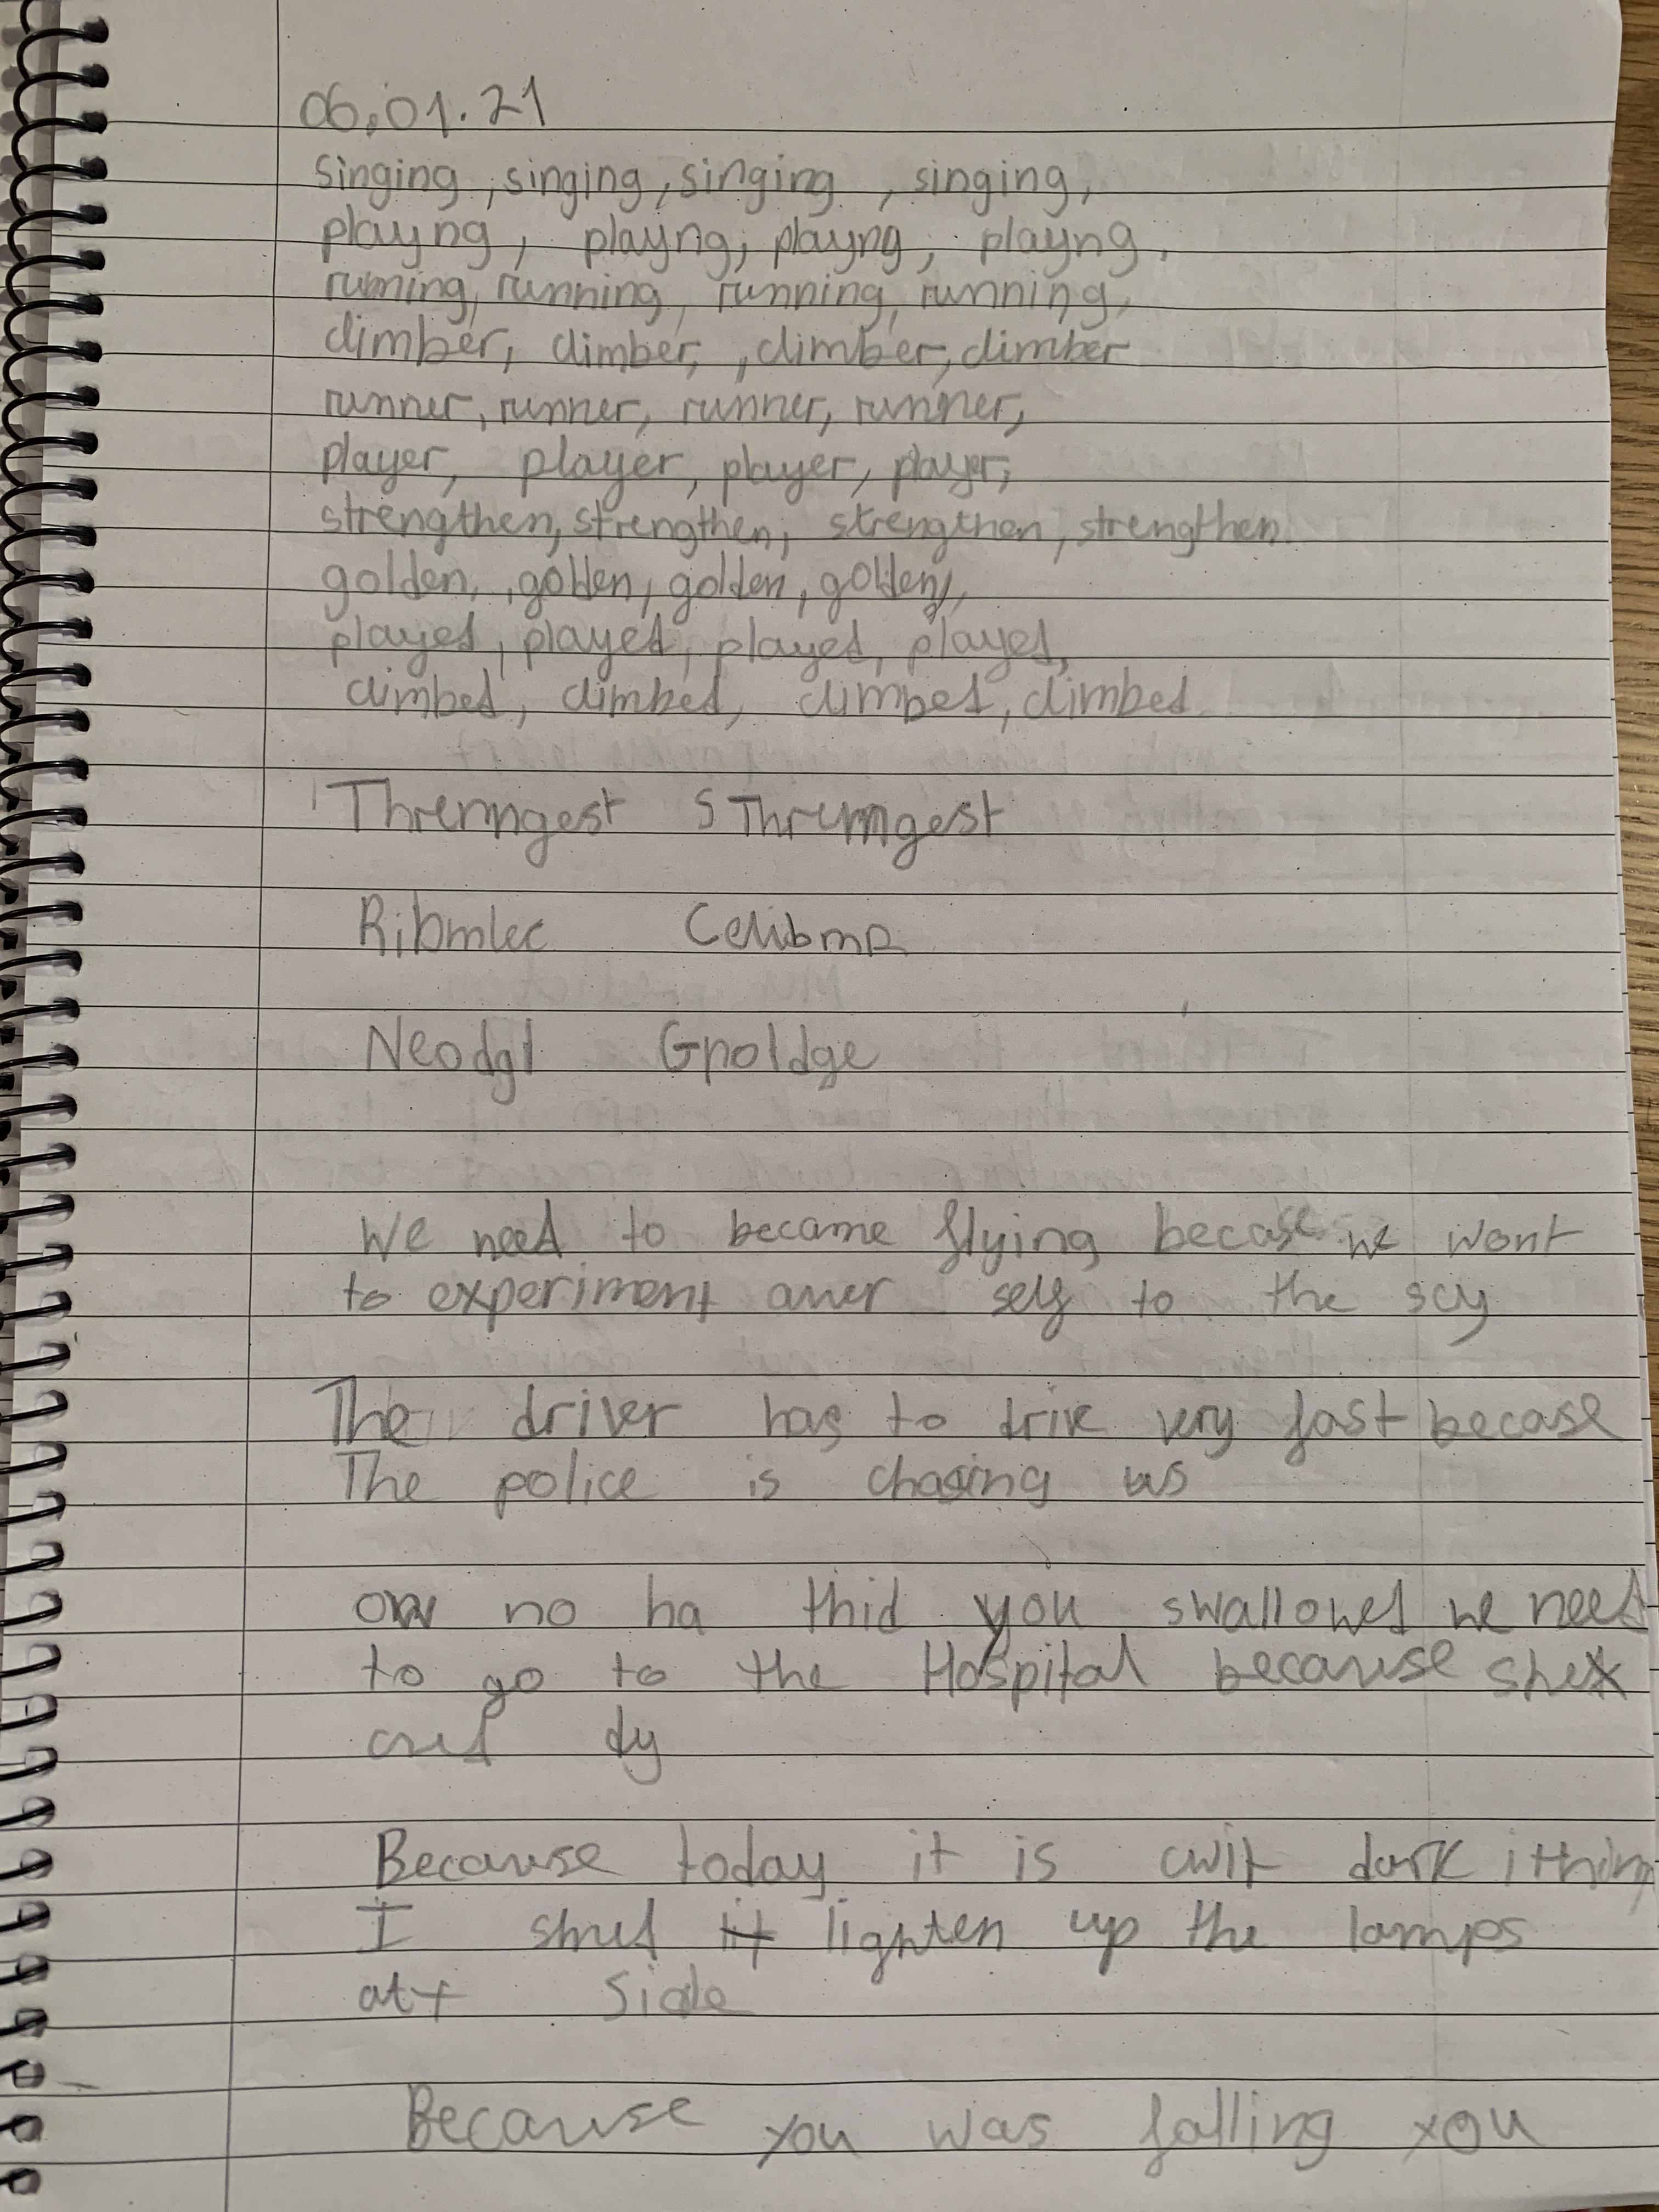 06.01.21
singing, singing, singing, singing,
playng, playng, playng, playng.
running, running, running, running,
climber, climber, climber, climber
runner, runner, runner, runner,
player, player, player, player,
strengthen, strengthen, strengthen, strengthen.
golden, golden, golden, golden,
played, played, played, played,
climbed, climbed, climbed, climbed.
Ribmlec
Neodgl Gnoldge
We need to became flying becase we wont
to experiment self to the scy
The driver has to drive very fast becase
The police is chasing us
no ha thid you swallowed we need
to go to the Hospital because
dy
Because today it is cwit dark
I shud it lighten up the lamps
side
Because you was falling you